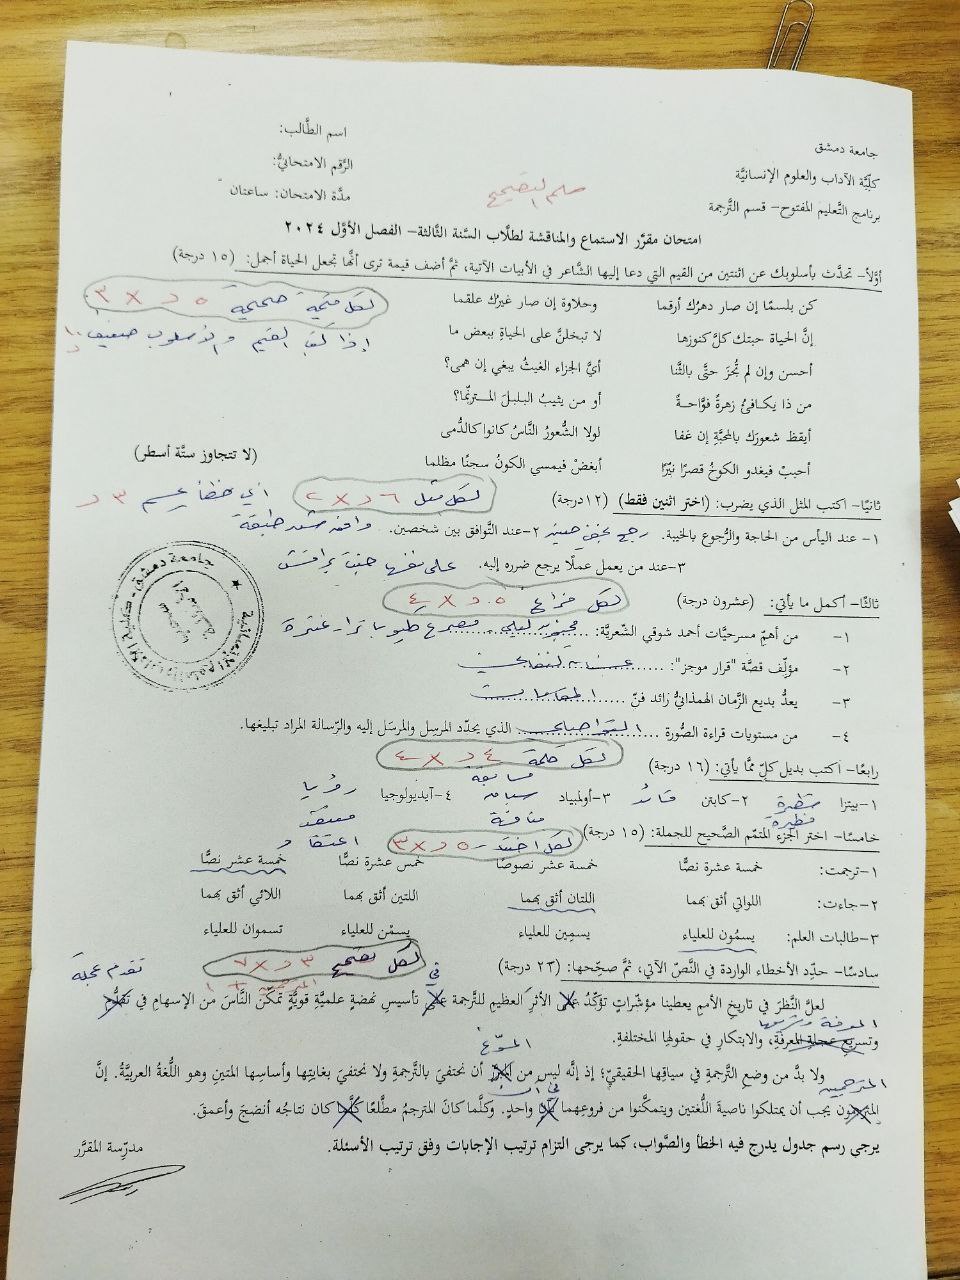 جامعة دمشق
كلّيَّة الآداب والعلوم الإنسانيَّة
برنامج التَّعليم المفتوح- قسم التَّرجمة
اسم الطَّالب:
الرَّقم الامتحانيُّ:
مدَّة الامتحان: ساعتان
سلم التصحيح
امتحان مقرَّر الاستماع والمناقشة لطلَّاب السَّنة الثَّالثة- الفصل الأوَّل ٢٠٢٤
أوَّلًا- تحدَّث بأسلوبك عن اثنتين من القيم التي دعا إليها الشَّاعر في الأبيات الآتية، ثمَّ أضف قيمة ترى أنَّها تجعل الحياة أجمل: (١٥ درجة)
لكل قيمة صحيحة ٥ د × ٣
كن بلسمًا إن صار دهرُك أرقما وحلاوة إن صار غيرُك علقما
إنَّ الحياة حبتك كلَّ كنوزها لا تبخلنَّ على الحياةِ ببعض ما
إذا كتب القيم والأسلوب ضعيف ١٠ د
أحسن وإن لم تُجزَ حتَّى بالثَّنا أيَّ الجزاء الغيثُ يبغي إن همى؟
من ذا يكافئُ زهرةً فوَّاحةً أو من يثيبُ البلبلَ المترنّما؟
أيقظ شعورَك بالمحبَّةِ إن غفا لولا الشُّعورُ النَّاسُ كانوا كالدُّمى
أحببْ فيغدو الكوخُ قصرًا نيّرًا أبغضْ فيمسي الكونُ سجنًا مظلما
(لا تتجاوز ستَّة أسطر)
ثانيًا- اكتب المثل الذي يضرب: (اختر اثنين فقط) (١٢درجة)
لكل مثل ٦ د × ٢
أي خطأ يحسم ٣ د
١- عند اليأس من الحاجة والرُّجوع بالخيبة. رجع بخفي حنين ٢-عند التَّوافق بين شخصين. وافق شن طبقة
٣-عند من يعمل عملًا يرجع ضرره إليه. على نفسها جنت براقش
ثالثًا- أكمل ما يأتي: (عشرون درجة) لكل فراغ ٥ د × ٤
١- من أهمّ مسرحيَّات أحمد شوقي الشّعريَّة: مجنون ليلى، مصرع كليوباترا، عنترة
٢- مؤلّف قصَّة "قرار موجز":
٣- يعدُّ بديع الزَّمان الهمذانيُّ رائد فنّ المقامات
٤- من مستويات قراءة الصُّورة التواصلي الذي يحدّد المرسِل والمرسَل إليه والرّسالة المراد تبليغها.
رابعًا- اكتب بديل كلّ ممَّا يأتي: (١٦ درجة) لكل كلمة ٤ د × ٤
١-بيتزا شطيرة فطيرة ٢-كابتن قائد ٣-أولمبياد مسابقة سباق منافسة ٤-آيديولوجيا رؤيا معتقد اعتقاد
خامسًا- اختر الجزء المتمّم الصَّحيح للجملة: (١٥ درجة) لكل اختيار ٥ د × ٣
١-ترجمت: خمسة عشرة نصًّا خمسة عشر نصوصًا خمس عشرة نصًّا خمسة عشر نصًّا
٢-جاءت: اللواتي أثق بهما اللتان أثق بهما اللتين أثق بهما اللائي أثق بهما
٣-طالبات العلم: يسمُون للعلياء يسمِين للعلياء يسمْن للعلياء تسموان للعلياء
سادسًا- حدّد الأخطاء الواردة في النَّصّ الآتي، ثمَّ صحّحها: (٢٣ درجة) لكل تصحيح ٣ د × ٧
تقدم عجلة
في
لعلَّ النَّظرَ في تاريخِ الأممِ يعطينا مؤشّراتٍ تؤكّدُ على الأثرَ العظيمِ للتَّرجمة على تأسيسِ نهضةٍ علميَّةٍ قويَّةٍ تمكّنُ النَّاسَ من الإسهامِ في تقدُّم
المعرفة وتسريعها
وتسريعِ عجلةِ المعرفةِ، والابتكارِ في حقولها المختلفةِ.
المسوّغ
ولا بدَّ من وضعِ التَّرجمةِ في سياقِها الحقيقيِّ؛ إذ إنَّه ليس من المبرّر أن نحتفيَ بالتَّرجمةِ ولا نحتفيَ بغايتِها وأساسِها المتينِ وهو اللُّغةُ العربيَّةُ. إنَّ
المترجمين
في آن
المترجمون يجب أن يمتلكوا ناصيةَ اللُّغتين ويتمكَّنوا من فروعِهما بآنٍ واحدٍ. وكلَّما كانَ المترجمُ مطَّلعًا كلَّما كان نتاجُه أنضجَ وأعمقَ.
يرجى رسم جدول يدرج فيه الخطأ والصَّواب، كما يرجى التزام ترتيب الإجابات وفق ترتيب الأسئلة.
مدرّسة المقرَّر